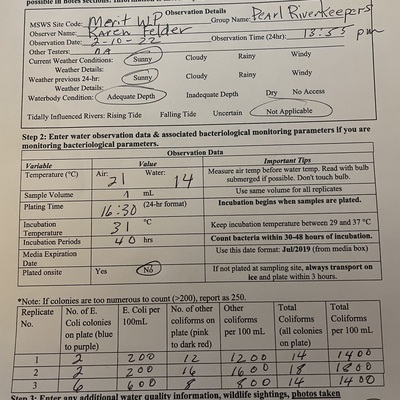 possible in notes sections.
Observation Details
MSWS Site Code: Merit WP Group Name: Pearl RiverKeepers
Observer Name: Karen Felder
Observation Date: 2-10-22 Observation Time (24hr): 13:55 pm
Other Testers: NA
Current Weather Conditions: Sunny Cloudy Rainy Windy
Weather Details:
Weather previous 24-hr: Sunny Cloudy Rainy Windy
Weather Details:
Waterbody Condition: Adequate Depth Inadequate Depth Dry No Access
Tidally Influenced Rivers: Rising Tide Falling Tide Uncertain Not Applicable
Step 2: Enter water observation data & associated bacteriological monitoring parameters if you are
monitoring bacteriological parameters.
Observation Data
Variable Value Important Tips
Temperature (°C) Air: 21 Water: 14 Measure air temp before water temp. Read with bulb
submerged if possible. Don't touch bulb.
Sample Volume 1 mL Use same volume for all replicates
Plating Time 16:30 (24-hr format) Incubation begins when samples are plated.
Incubation
Temperature 31 °C Keep incubation temperature between 29 and 37 °C
Incubation Periods 40 hrs Count bacteria within 30-48 hours of incubation.
Media Expiration
Date Use this date format: Jul/2019 (from media box)
Plated onsite Yes No If not plated at sampling site, always transport on
ice and plate within 3 hours.
*Note: If colonies are too numerous to count (>200), report as 250.
Replicate No. No. of E. Coli colonies on plate (blue to purple) E. Coli per 100mL No. of other coliforms on plate (pink to dark red) Other coliforms per 100 mL Total Coliforms (all colonies on plate) Total Coliforms per 100 mL
1 2 200 12 1200 14 1400
2 2 200 16 1600 18 1800
3 6 600 8 800 14 1400
Step 3: Enter any additional water quality information, wildlife sightings, photos taken